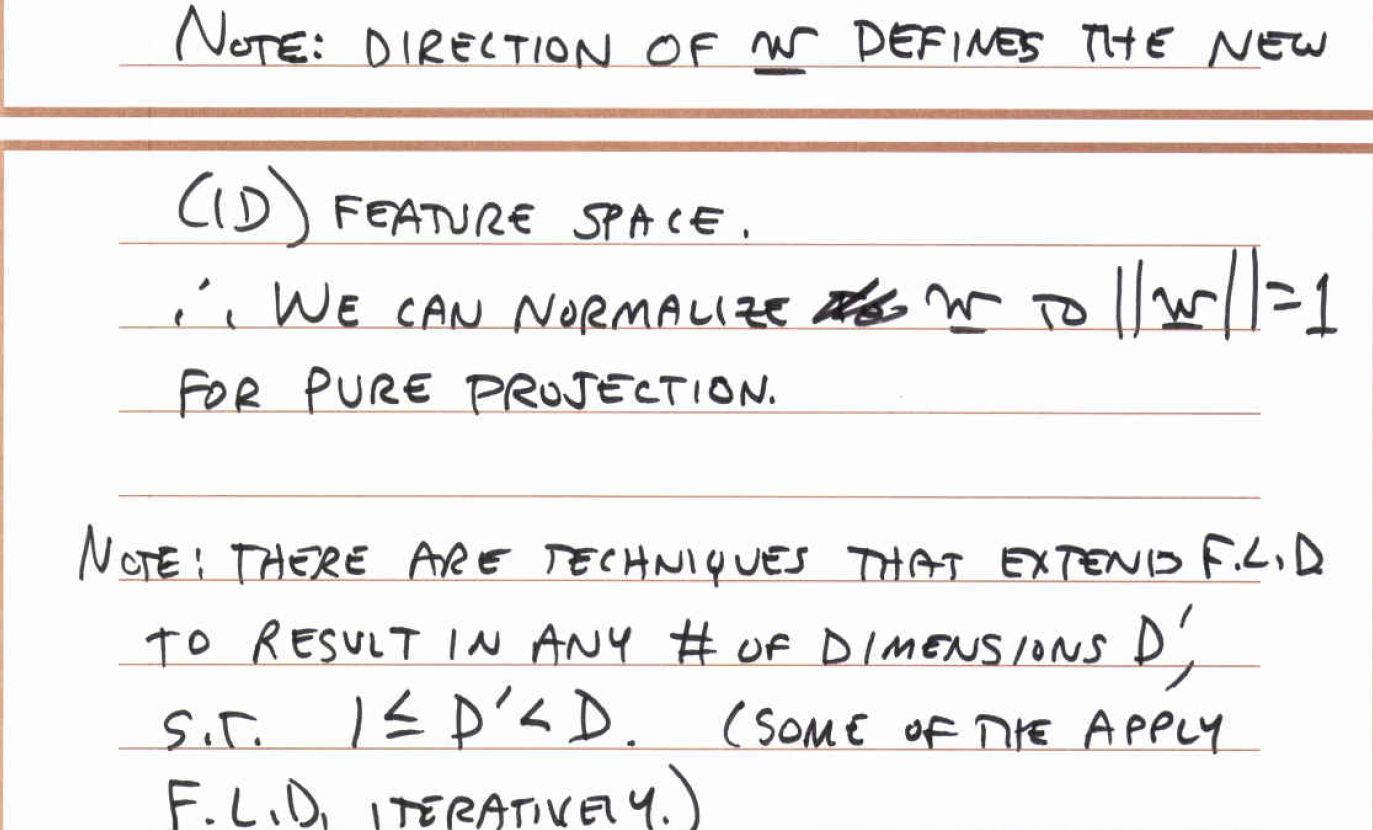 NOTE: DIRECTION OF w DEFINES THE NEW
(1D) FEATURE SPACE.
∴ WE CAN NORMALIZE w TO ||w||=1
FOR PURE PROJECTION.
NOTE: THERE ARE TECHNIQUES THAT EXTEND F.L.D
TO RESULT IN ANY # OF DIMENSIONS D',
S.T. 1≤D'<D. (SOME OF THE APPLY
F.L.D. ITERATIVELY.)